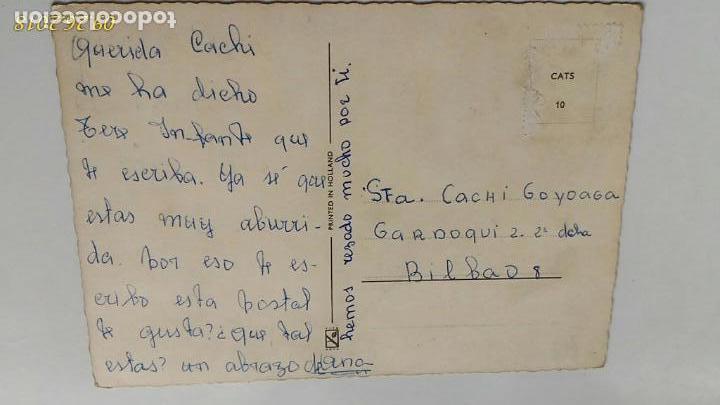 todocoleccion
09 26 2018
Querida Cachi
me ha dicho
Tere Infante que
te escriba. Ya sé que
estas muy aburri-
da. por eso te es-
cribo esta postal
te gusta? ¿que tal
estas? un abrazo de ana
hemos rezado mucho por ti.
PRINTED IN HOLLAND
CATS
10
Sta. CACHI GOYOAGA
GARDOQUI 2. 2ª dcha
BILBAO 8